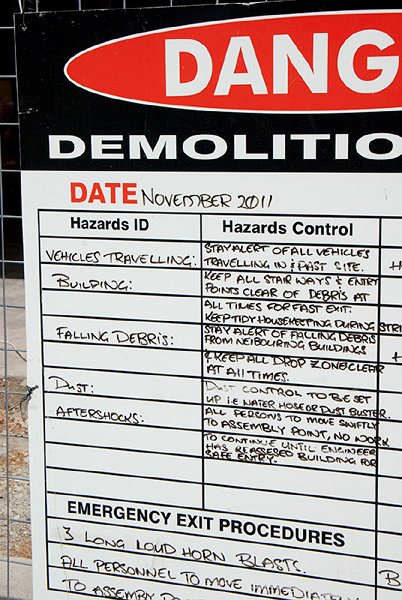 DANG
DEMOLITIO
DATE NOVEMBER 2011
Hazards ID Hazards Control
VEHICLES TRAVELLING: STAY ALERT OF ALL VEHICLES
TRAVELLING IN & PAST SITE. H
BUILDING: KEEP ALL STAIR WAYS & ENTRY
POINTS CLEAR OF DEBRIS AT
ALL TIMES FOR FAST EXIT.
KEEP TIDY HOUSEKEEPING DURING STRI
FALLING DEBRIS: STAY ALERT OF FALLING DEBRIS
FROM NEIBOURING BUILDINGS H
& KEEP ALL DROP ZONE CLEAR
AT ALL TIMES.
DUST: DUST CONTROL TO BE SET
UP i.e WATER HOSE OR DUST BUSTER.
AFTERSHOCKS: ALL PERSONS TO MOVE SWIFTLY
TO ASSEMBLY POINT, NO WORK
TO CONTINUE UNTIL ENGINEER
HAS REASSESED BUILDING FOR
SAFE ENTRY.
EMERGENCY EXIT PROCEDURES
3 LONG LOUD HORN BLASTS.
ALL PERSONNEL TO MOVE IMMEDIATELY B
TO ASSEMBLY